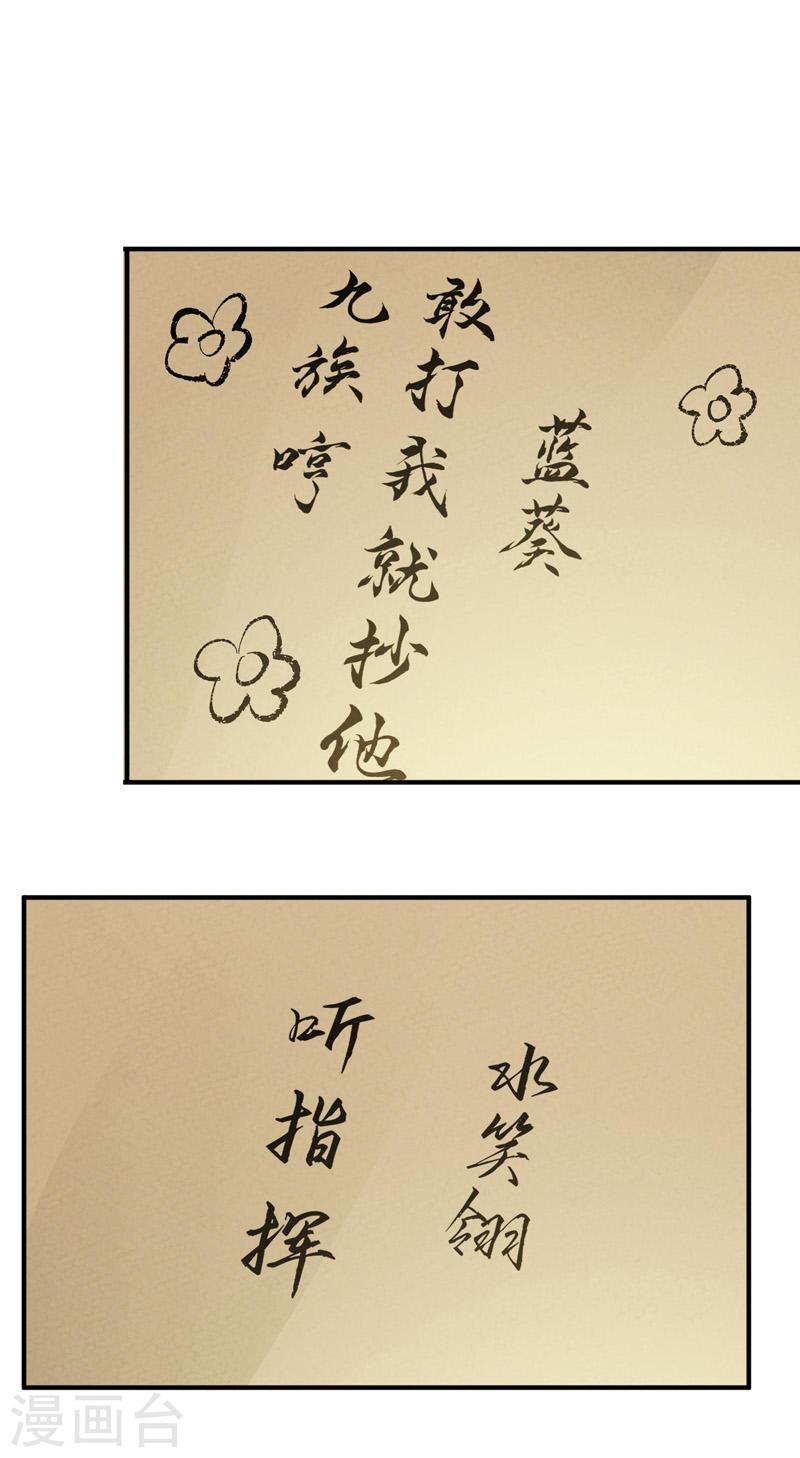 蓝葵
敢打我就抄他
九族哼
水笑翎
听指挥
漫画台